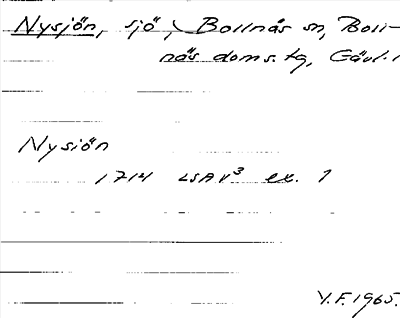 Nysjön, sjö, Bollnås sn, Boll-
näs doms. tg, Gävl. l
Nysjön
1714 LSA V³ ex. 1
V.F. 1965.